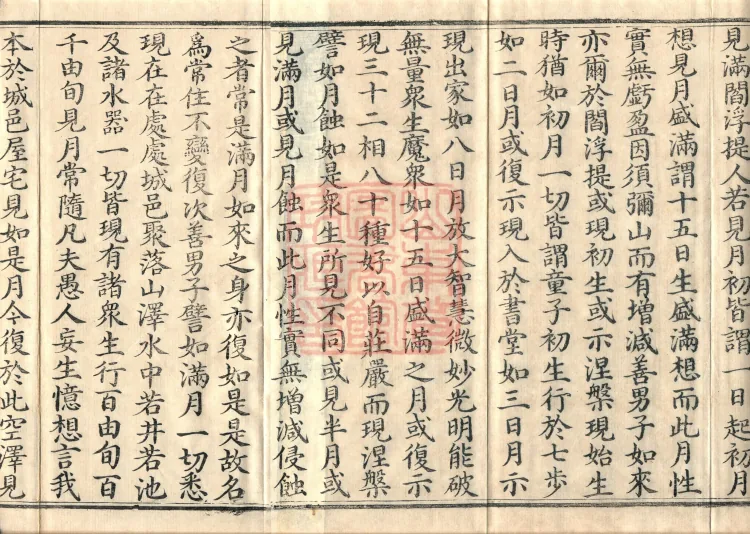 見滿閻浮提人若見月初皆謂一日起初月
想見月盛滿謂十五日生盛滿想而此月性
實無虧盈因須彌山而有增減善男子如來
亦爾於閻浮提或現初生或示涅槃現始生
時猶如初月一切皆謂童子初生行於七步
如二日月或復示現入於書堂如三日月示
現出家如八日月放大智慧微妙光明能破
無量衆生魔衆如十五日盛滿之月或復示
現三十二相八十種好以自莊嚴而現涅槃
譬如月蝕如是衆生所見不同或見半月或
見滿月或見月蝕而此月性實無增減侵蝕
之者常是滿月如來之身亦復如是是故名
爲常住不變復次善男子譬如滿月一切悉
現在在處處城邑聚落山澤水中若井若池
及諸水器一切皆現有諸衆生行百由旬百
千由旬見月常隨凡夫愚人妄生憶想言我
本於城邑屋宅見如是月今復於此空澤見